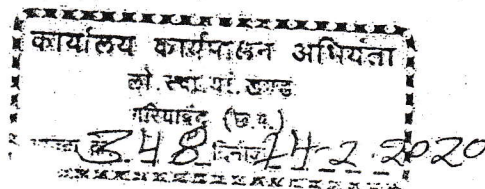 कार्यालय कार्यपालन अभियंता
लो. स्वा. यां. खण्ड
गरियाबंद (छ.ग.)
348 दिनांक 14-2-2020